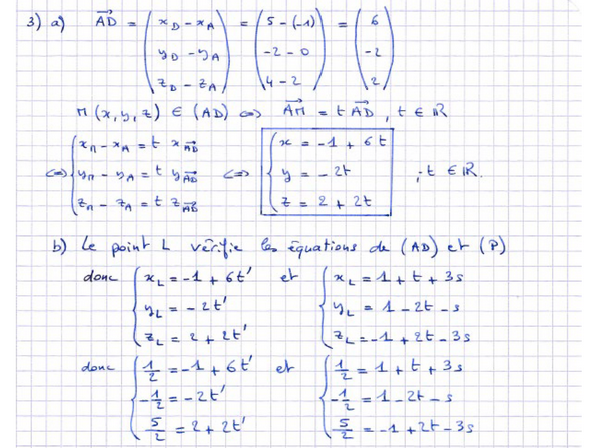 3) a) $\overrightarrow{AD} = \begin{pmatrix} x_D - x_A \\ y_D - y_A \\ z_D - z_A \end{pmatrix} = \begin{pmatrix} 5 - (-1) \\ -2 - 0 \\ 4 - 2 \end{pmatrix} = \begin{pmatrix} 6 \\ -2 \\ 2 \end{pmatrix}$
M(x, y, z) ∈ (AD) ⟺ $\overrightarrow{AM} = t \overrightarrow{AD}$, t ∈ ℝ
⟺ $\begin{cases} x_M - x_A = t \, x_{\overrightarrow{AD}} \\ y_M - y_A = t \, y_{\overrightarrow{AD}} \\ z_M - z_A = t \, z_{\overrightarrow{AD}} \end{cases}$ ⟺ $\boxed{\begin{cases} x = -1 + 6t \\ y = -2t \\ z = 2 + 2t \end{cases}}$ ; t ∈ ℝ.
b) Le point L vérifie les équations de (AD) et (P)
donc $\begin{cases} x_L = -1 + 6t' \\ y_L = -2t' \\ z_L = 2 + 2t' \end{cases}$ et $\begin{cases} x_L = 1 + t + 3s \\ y_L = 1 - 2t - s \\ z_L = -1 + 2t - 3s \end{cases}$
donc $\begin{cases} \frac{1}{2} = -1 + 6t' \\ -\frac{1}{2} = -2t' \\ \frac{5}{2} = 2 + 2t' \end{cases}$ et $\begin{cases} \frac{1}{2} = 1 + t + 3s \\ -\frac{1}{2} = 1 - 2t - s \\ \frac{5}{2} = -1 + 2t - 3s \end{cases}$